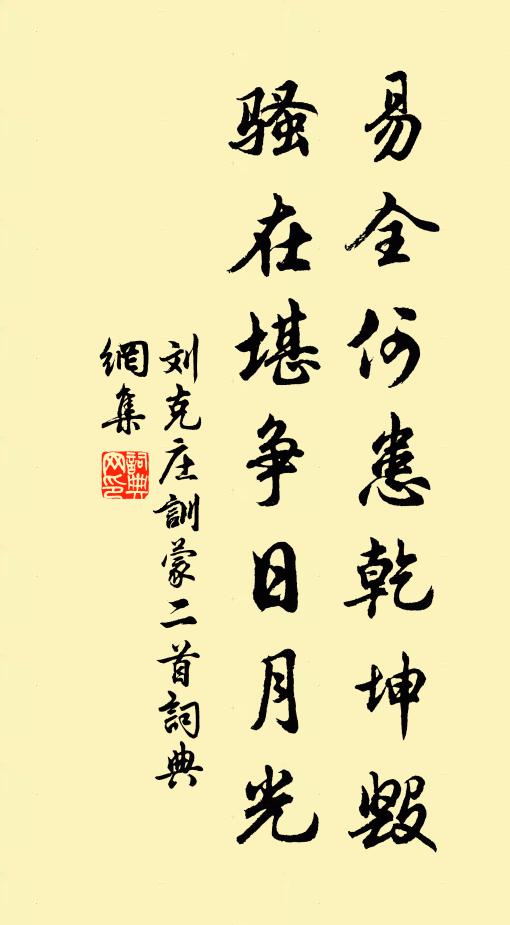 易全何患乾坤毀
騷在堪争日月光
刘克庄訓蒙二首詞典
網集
詞典网印